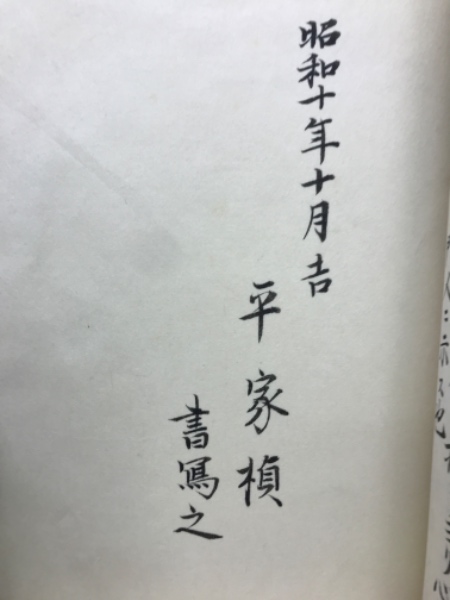 昭和十年十月吉
平家楨
書写之